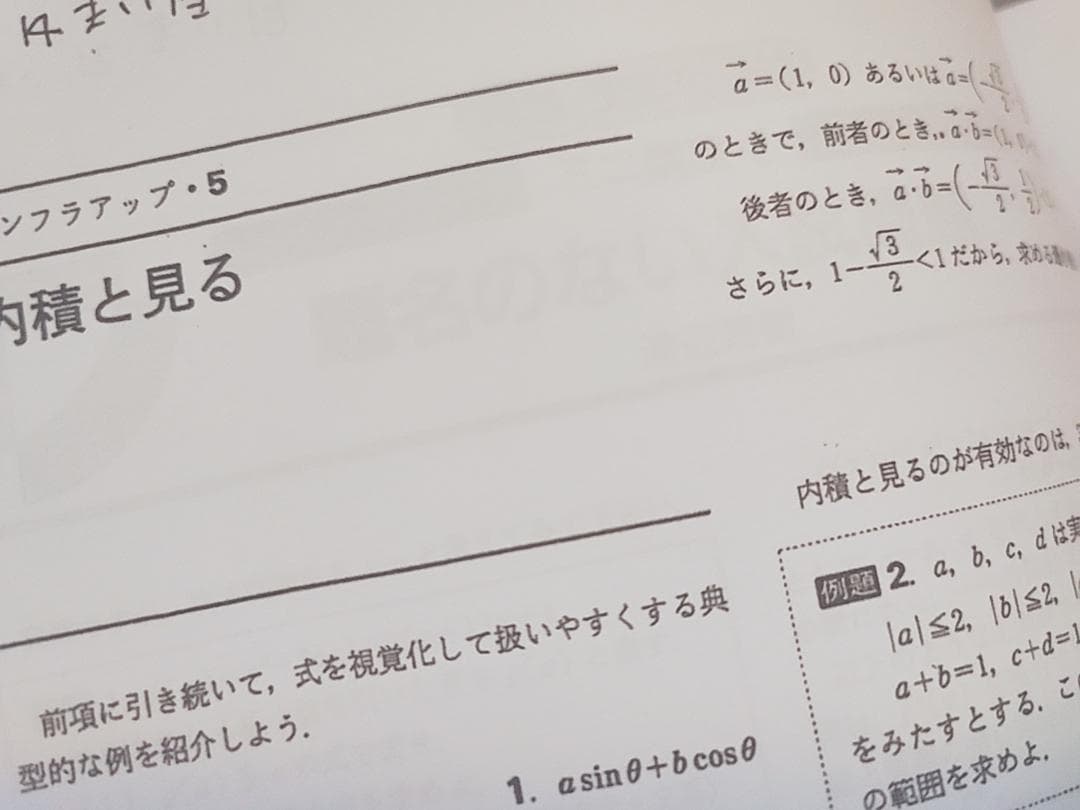 ンフラアップ・5
内積と見る
前項に引き続いて，式を視覚化して扱いやすくする典
型的な例を紹介しよう．
1. a sinθ+b cosθ
a→=(1, 0) あるいは a→=(-√3/2
のときで，前者のとき，a→・b→=(1, 0)
後者のとき，a→・b→=(-√3/2, 1/2)
さらに，1-√3/2<1 だから，求める
内積と見るのが有効なのは，
例題 2. a, b, c, d は実
|a|≦2, |b|≦2, |
a+b=1, c+d=1
をみたすとする．こ
の範囲を求めよ．